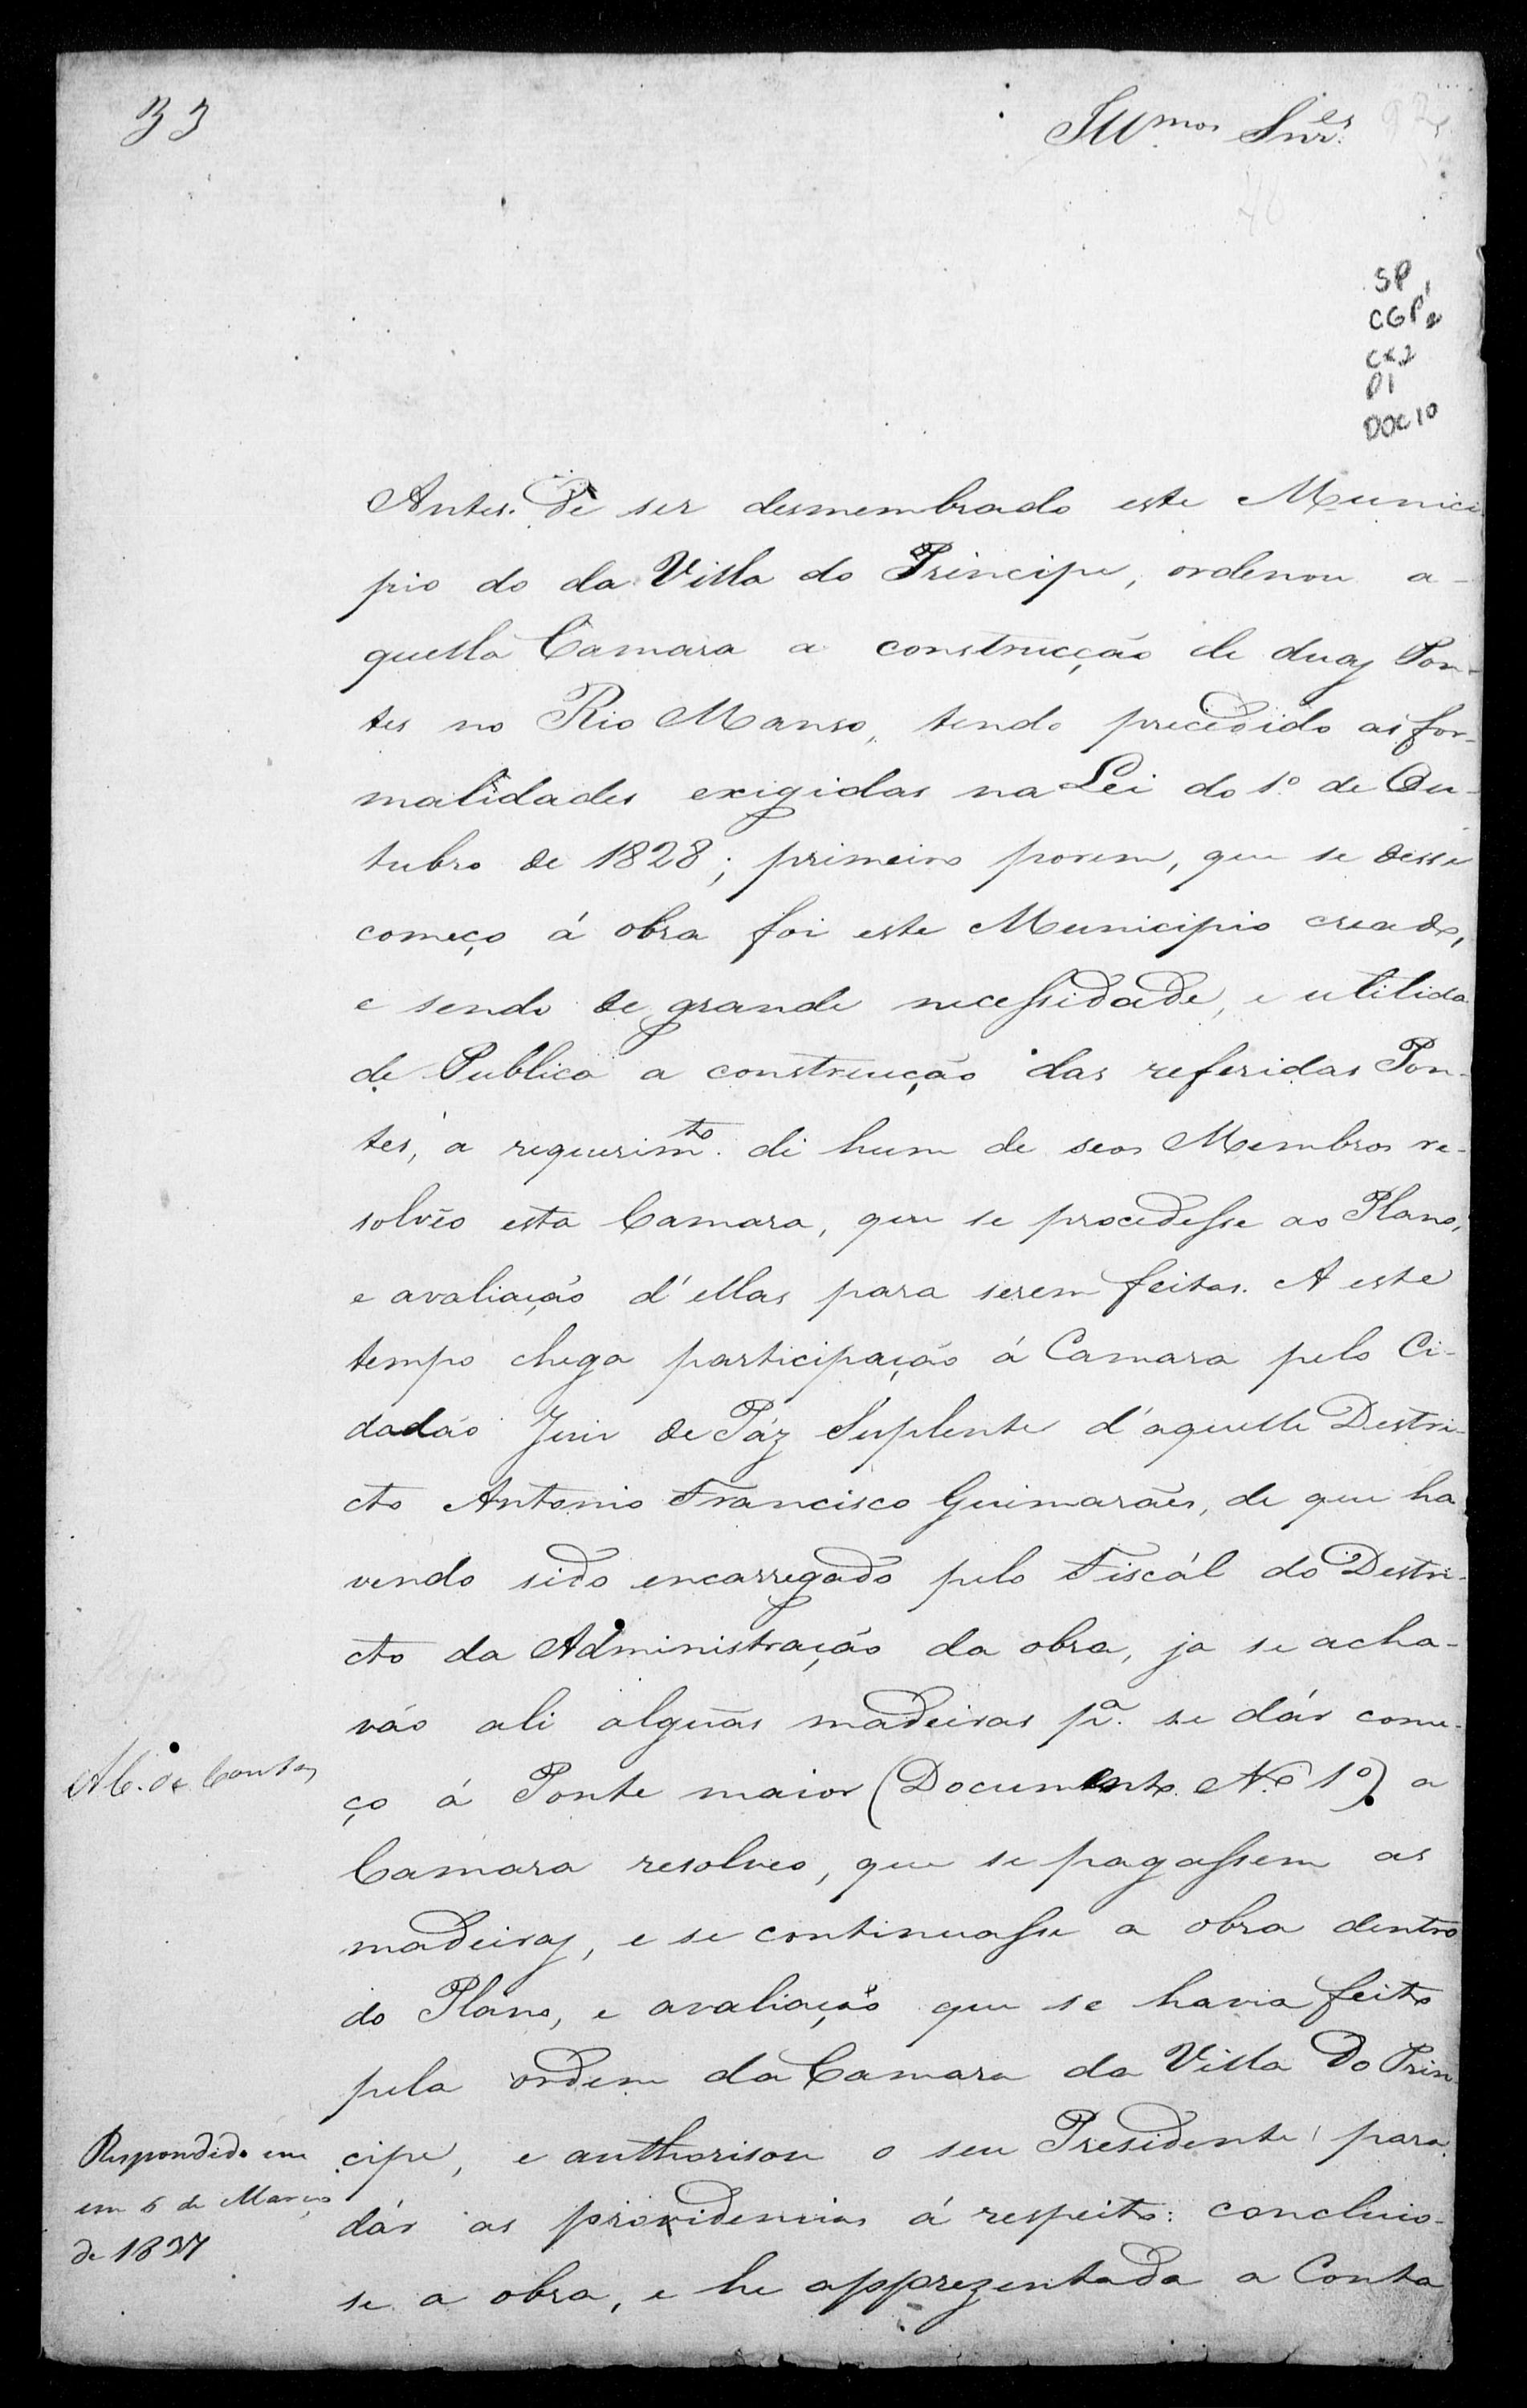 33
Illmos Snres
SP
CGP
CX.2
D1
DOC 10
Antes de ser desmembrado este Munici
pio do da Villa do Principe, ordenou a-
quella Camara a construcção de duas Pon-
tes no Rio Manso, tendo precedido as for-
malidades exigidas na Lei do 1º de Ou-
tubro de 1828; primeiro porem, que se desse
começo á obra foi este Municipio creado,
e sendo de grande necessidade, e utilida
de Publica a construcção das referidas Pon-
tes, a requerimto. de hum de seos Membros re-
solvêo esta Camara, que se procedesse ao Plano,
e avaliação d'ellas para serem feitas. A este
tempo chega participação á Camara pelo Ci-
dadão Juiz de Páz Suplente d'aquelle Destri-
cto Antonio Francisco Guimarães, de que ha
vendo sido encarregado pelo Fiscál do Destri-
cto da Administração da obra, ja se acha-
vão ali alguãs madeiras pa. se dár come-
ço á Ponte maior (Documento Nº 1º) a
Camara resolveo, que se pagassem as
madeiras, e se continuasse a obra dentro
do Plano, e avaliação que se havia feito
pela ordem da Camara da Villa do Prin
cipe, e authorisou o seu Presidente para
dár as providencias á respeito: concluio-
se a obra, e he apprezentada a Conta
A C. de Contas
Respondido em
em 6 de Março
de 1837